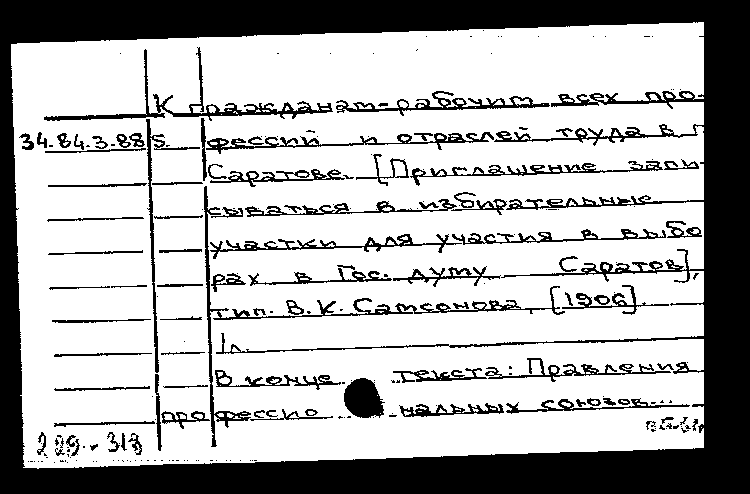 К гражданам-рабочим всех про-
34.84.3.88 S. фессий и отраслей труда в г.
Саратове. [Приглашение запи-
сываться в избирательные
участки для участия в выбо
рах в Гос. думу Саратов],
тип. В. К. Самсонова, [1906].
1л.
В конце текста: Правления
профессио нальных союзов...
229-313